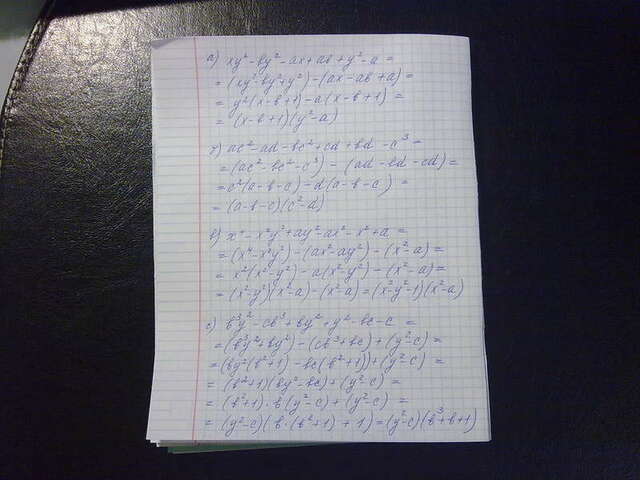 а) xy²-by²-ax+ab+y²-a =
= (xy²-by²+y²)-(ax-ab+a) =
= y²(x-b+1)-a(x-b+1) =
= (x-b+1)(y²-a)
ac²-ad-bc²+cd+bd-c³ =
= (ac²-bc²-c³) - (ad-bd-cd) =
= c²(a-b-c)-d(a-b-c) =
= (a-b-c)(c²-d)
в) x⁴-x²y²+ay²-ax²-x²+a =
= (x⁴-x²y²)-(ax²-ay²)-(x²-a) =
= x²(x²-y²)-a(x²-y²)-(x²-a) =
= (x²-y²)(x²-a)-(x²-a) = (x²-y²-1)(x²-a)
b³y²-cb³+by²+y²-bc-c =
= (b³y²+by²)-(cb³+bc)+(y²-c) =
= (by²(b²+1)-bc(b²+1))+(y²-c) =
= (b²+1)(by²-bc)+(y²-c) =
= (b²+1)·b(y²-c)+(y²-c) =
= (y²-c)(b·(b²+1)+1) = (y²-c)(b³+b+1)